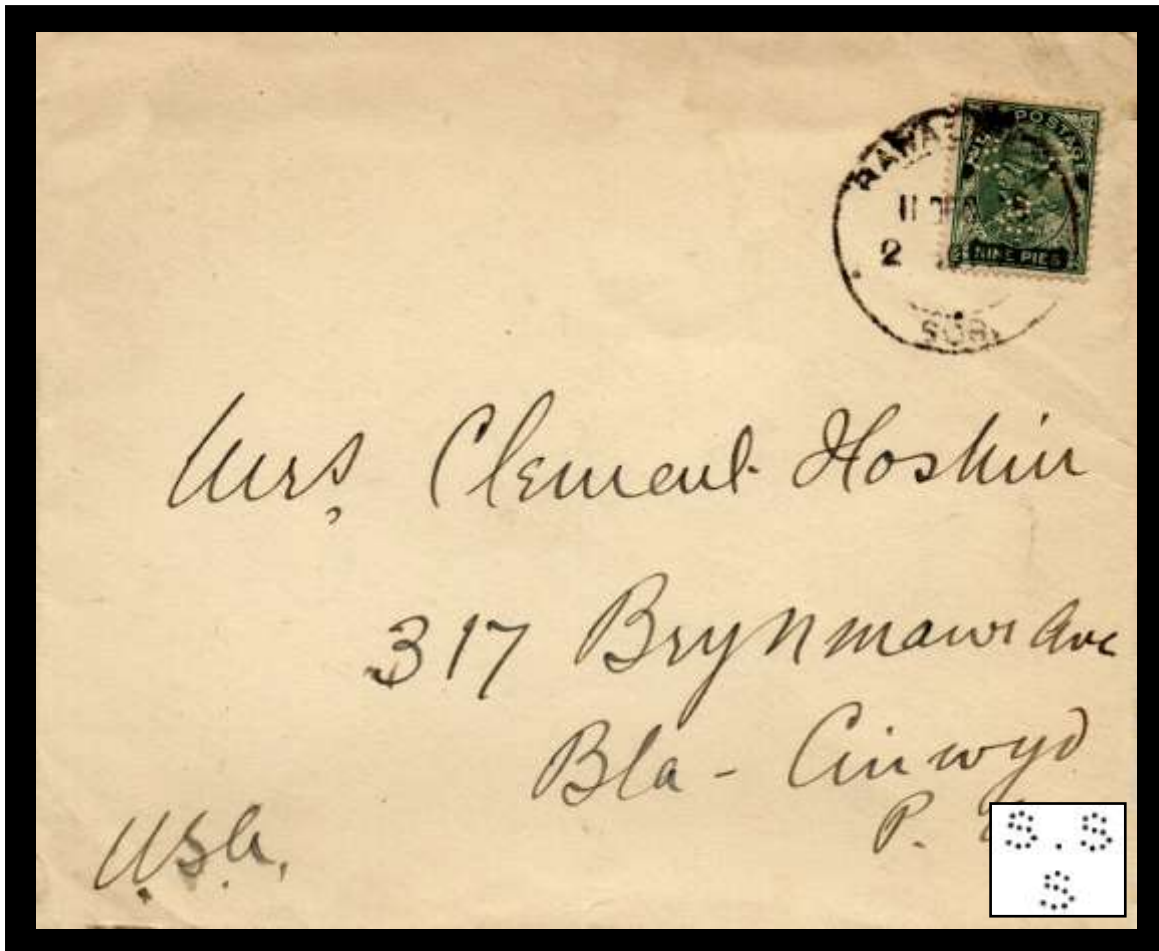 POSTAGE
NINE PIES
2
SUB
Mrs, Clement Hoskin
317 Brynmawr Ave
Bla - Cinwyd
P.
U.S.A.
S.S
S